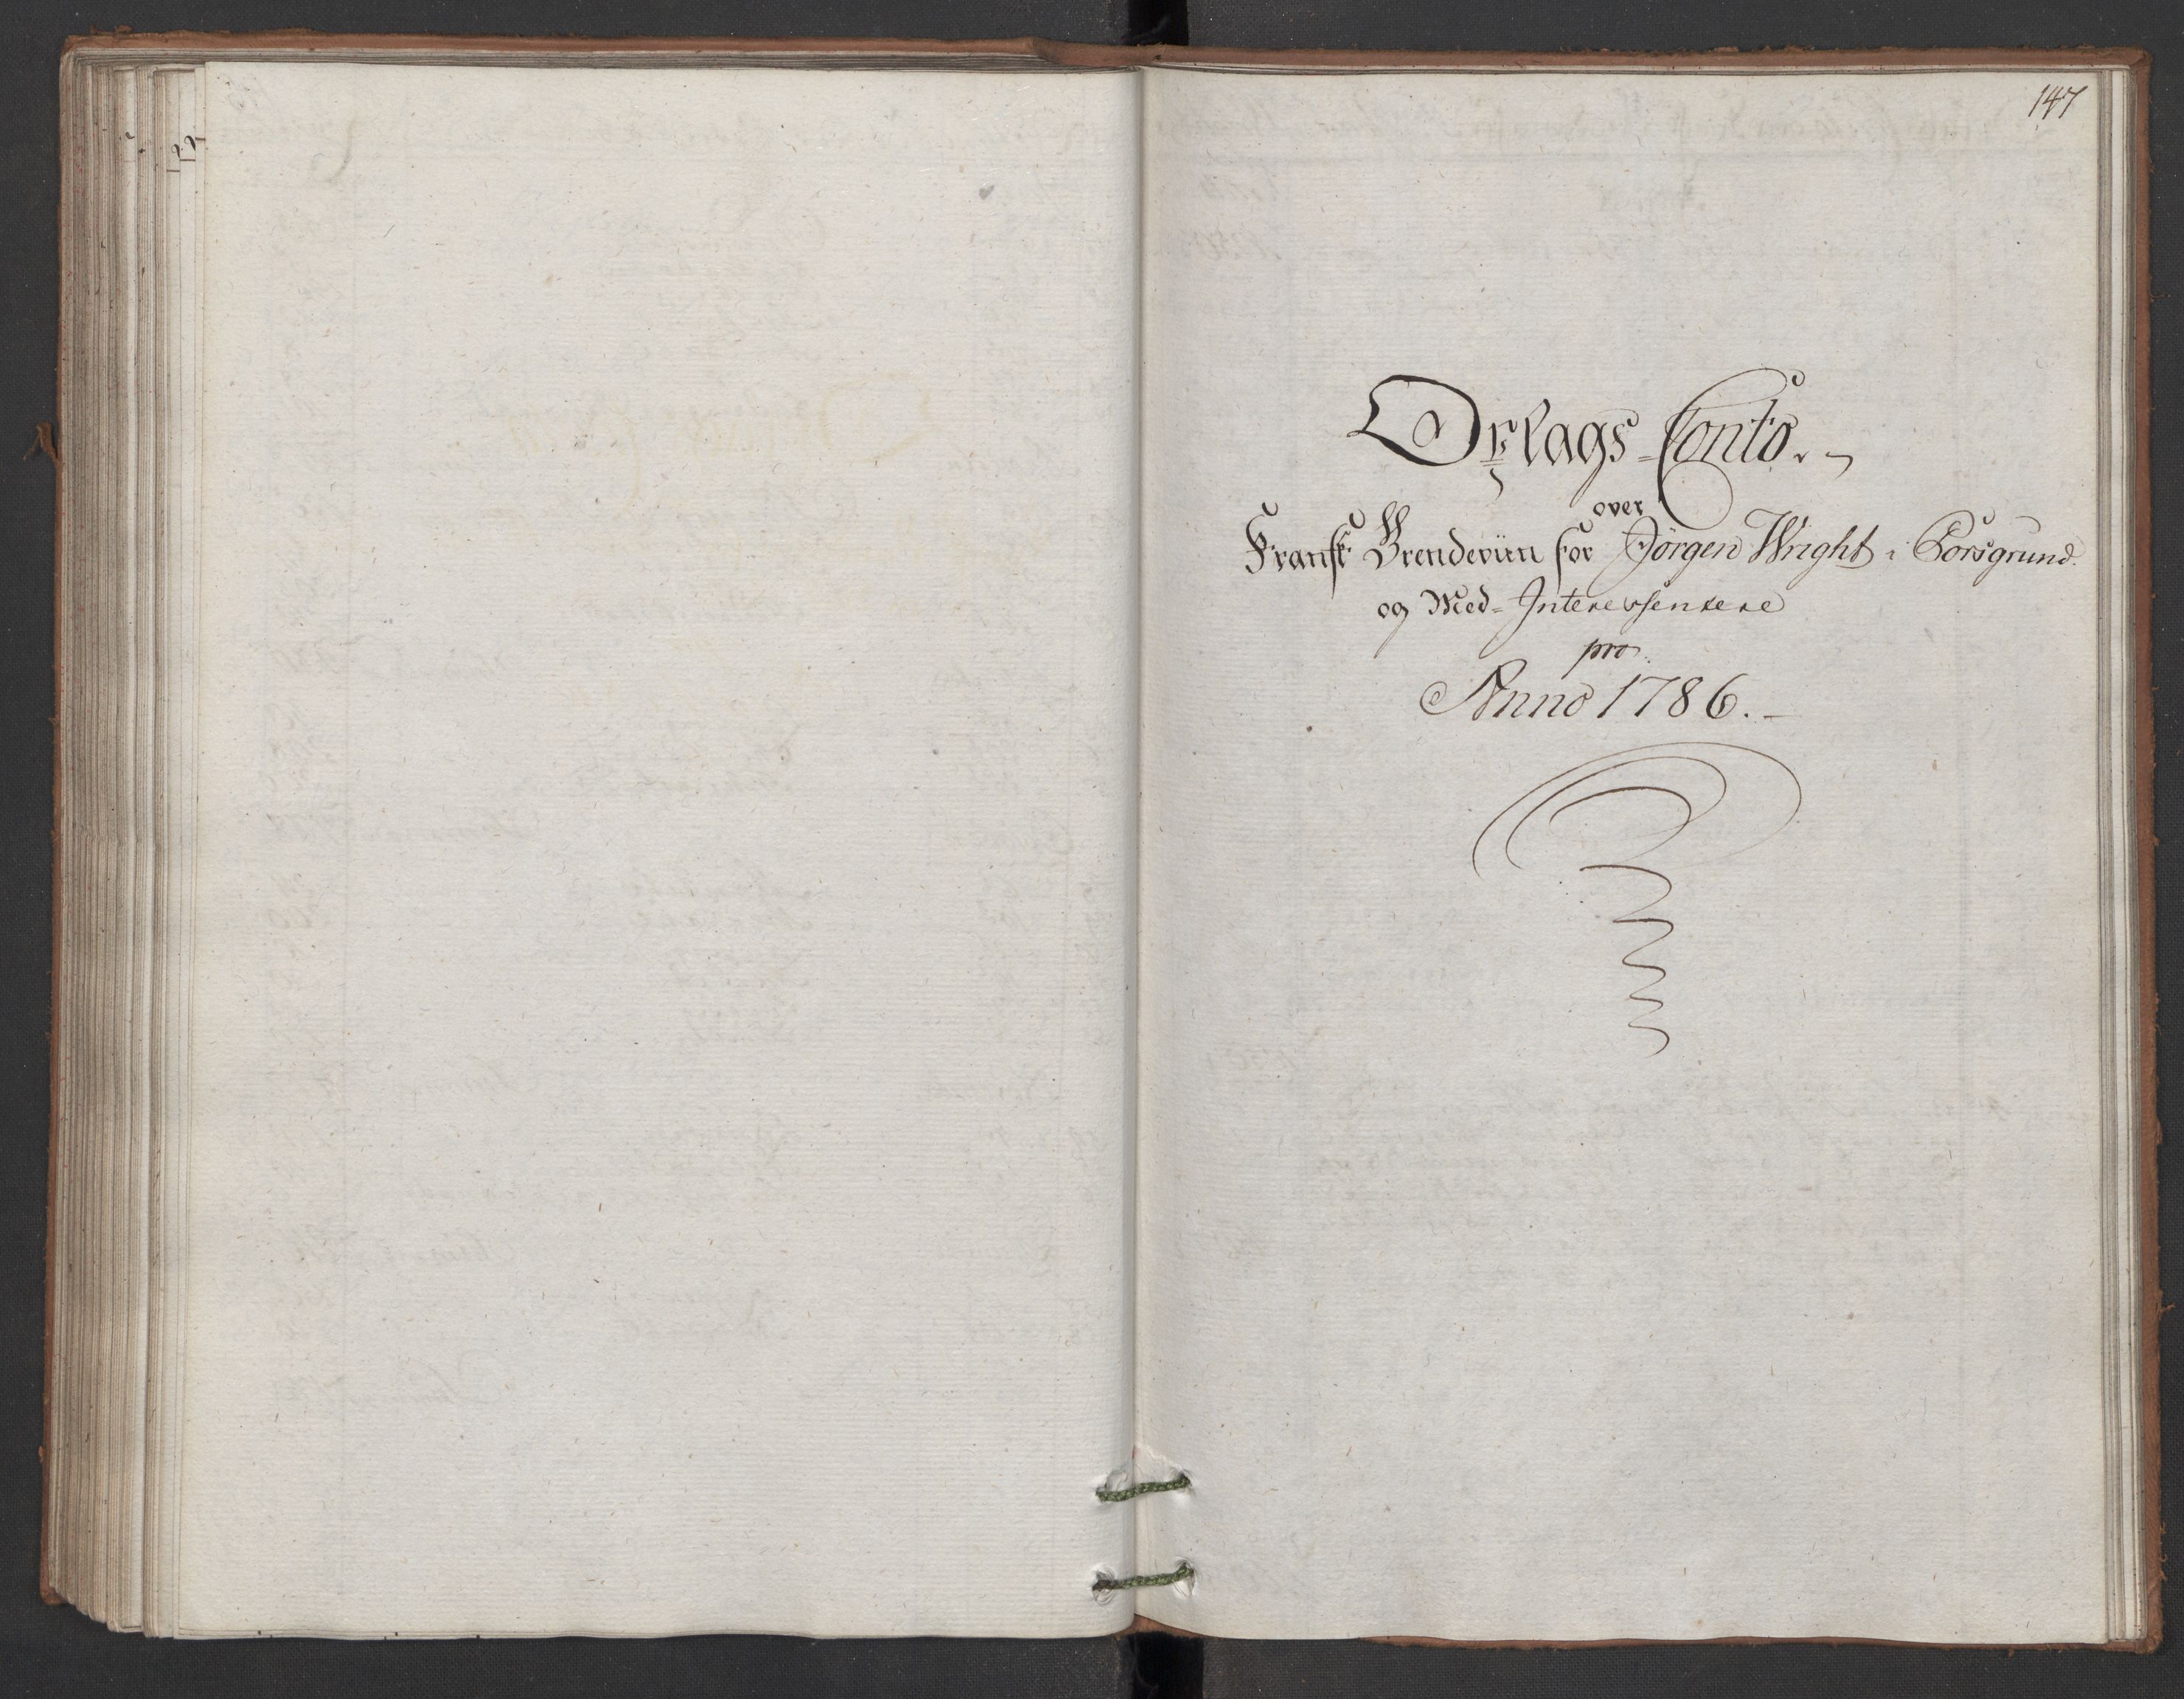 147
Oplags-Conto.
over
Fransk Brendeviin for Jørgen Wright i Porsgrund.
og Med-Interessentere
pro.
Anno 1786.